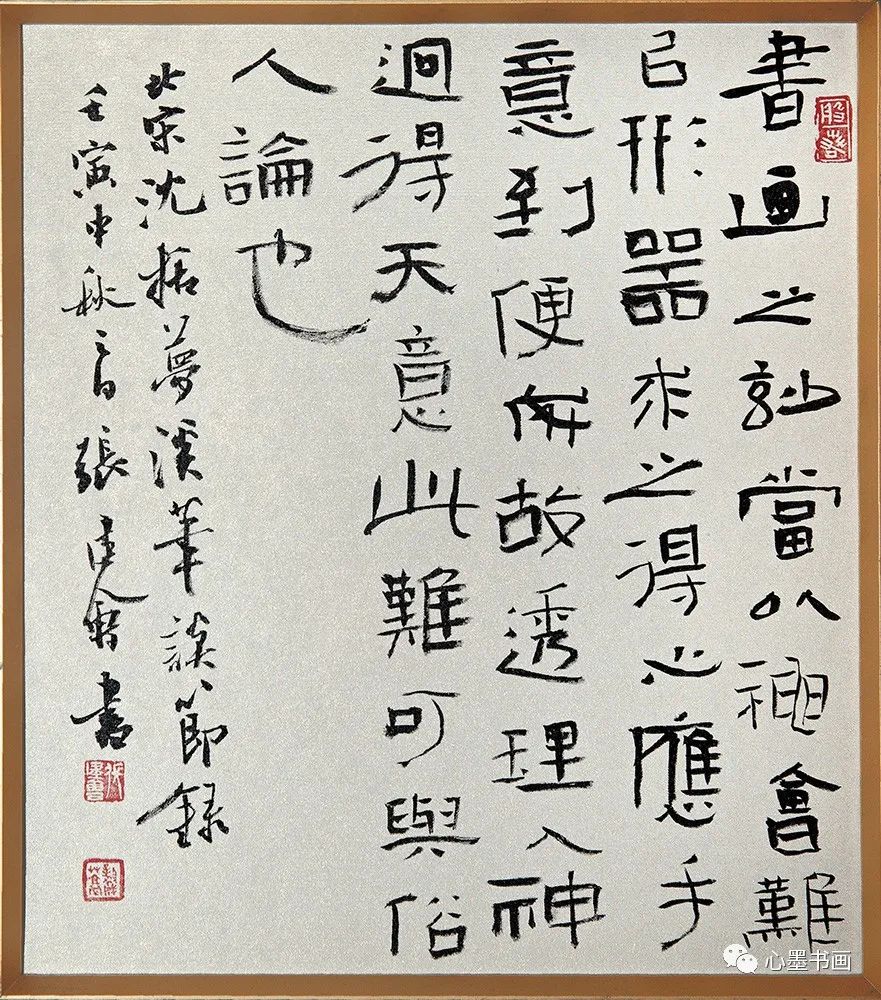 書画之妙當以神會難
㠯形器求之得心應手
意到便成故透理入神
逈得天意此難可與俗
人論也
北宋沈括夢溪筆談節錄
壬寅中秋張建會書
心墨书画